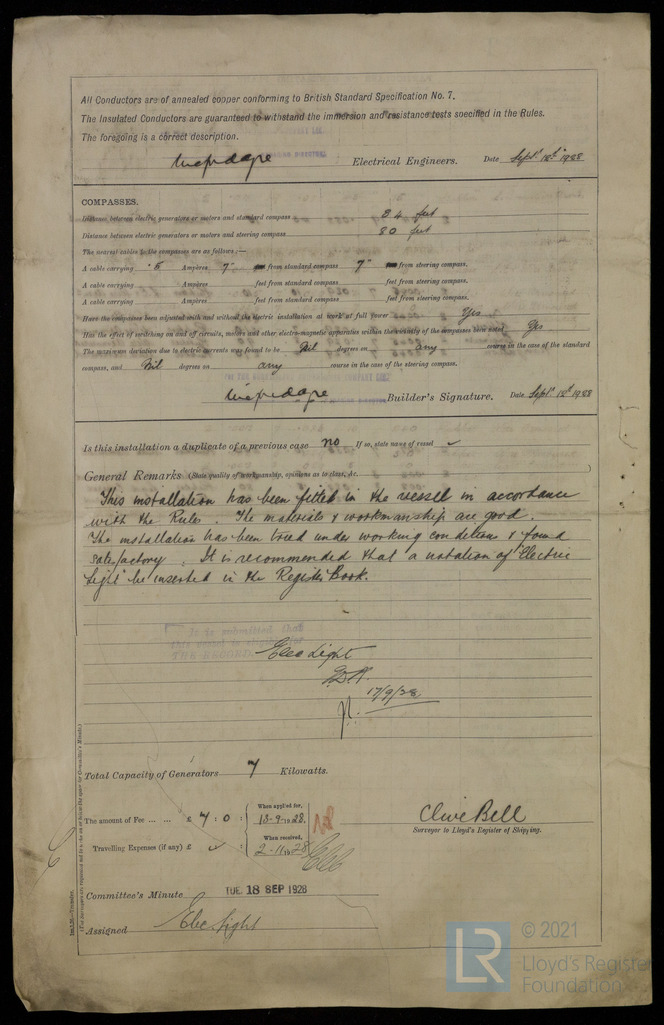 All Conductors are of annealed copper conforming to British Standard Specification No. 7.
The Insulated Conductors are guaranteed to withstand the immersion and resistance tests specified in the Rules.
The foregoing is a correct description.
Electrical Engineers. Date Sept 12th 1928
COMPASSES.
Distance between electric generators or motors and standard compass 84 feet
Distance between electric generators or motors and steering compass 80 feet
The nearest cables to the compasses are as follows:—
A cable carrying ·5 Ampères 7" from standard compass 7" from steering compass.
A cable carrying Ampères feet from standard compass feet from steering compass.
A cable carrying Ampères feet from standard compass feet from steering compass.
Have the compasses been adjusted with and without the electric installation at work at full power Yes
Has the effect of switching on and off circuits, motors and other electro-magnetic apparatus within the vicinity of the compasses been noted Yes
The maximum deviation due to electric currents was found to be Nil degrees on any course in the case of the standard
compass, and Nil degrees on any course in the case of the steering compass.
Builder's Signature. Date Sept 12th 1928
Is this installation a duplicate of a previous case no If so, state name of vessel
General Remarks (State quality of workmanship, opinions as to class, &c.)
This installation has been fitted in the vessel in accordance
with the Rules. The materials & workmanship are good.
The installation has been tried under working conditions & found
satisfactory. It is recommended that a notation of "Electric
Light" be inserted in the Register Book.
It is submitted that
this vessel is eligible for
THE RECORD
Elec Light
17/9/28
Total Capacity of Generators 7 Kilowatts.
The amount of Fee ... ... £ 7 : 0 : When applied for, 13-9-1928.
Travelling Expenses (if any) £ : When received, 2-11-1928
Clive Bell
Surveyor to Lloyd's Register of Shipping.
Committee's Minute TUE. 18 SEP 1928
Assigned Elec. Light
LR © 2021
Lloyd's Register
Foundation